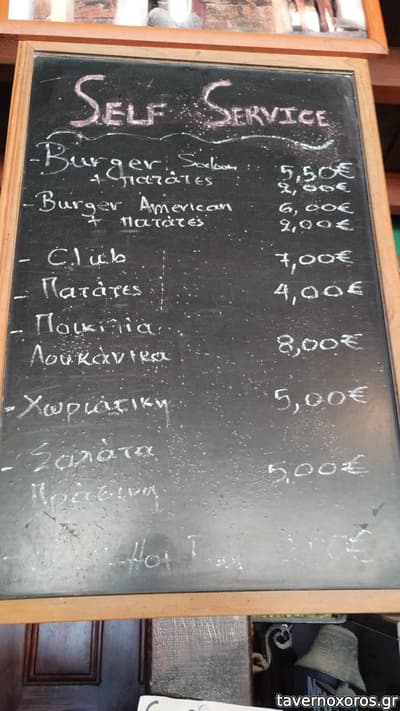 SELF SERVICE
- Burger Saloon 5,50€
+ πατάτες 2,00€
- Burger American 6,00€
+ πατάτες 2,00€
- Club 7,00€
- Πατάτες 4,00€
- Ποικιλία
Λουκάνικα 8,00€
- Χωριάτικη 5,00€
- Σαλάτα
Πράσινη 5,00€
Hot €
tavernoxoros.gr